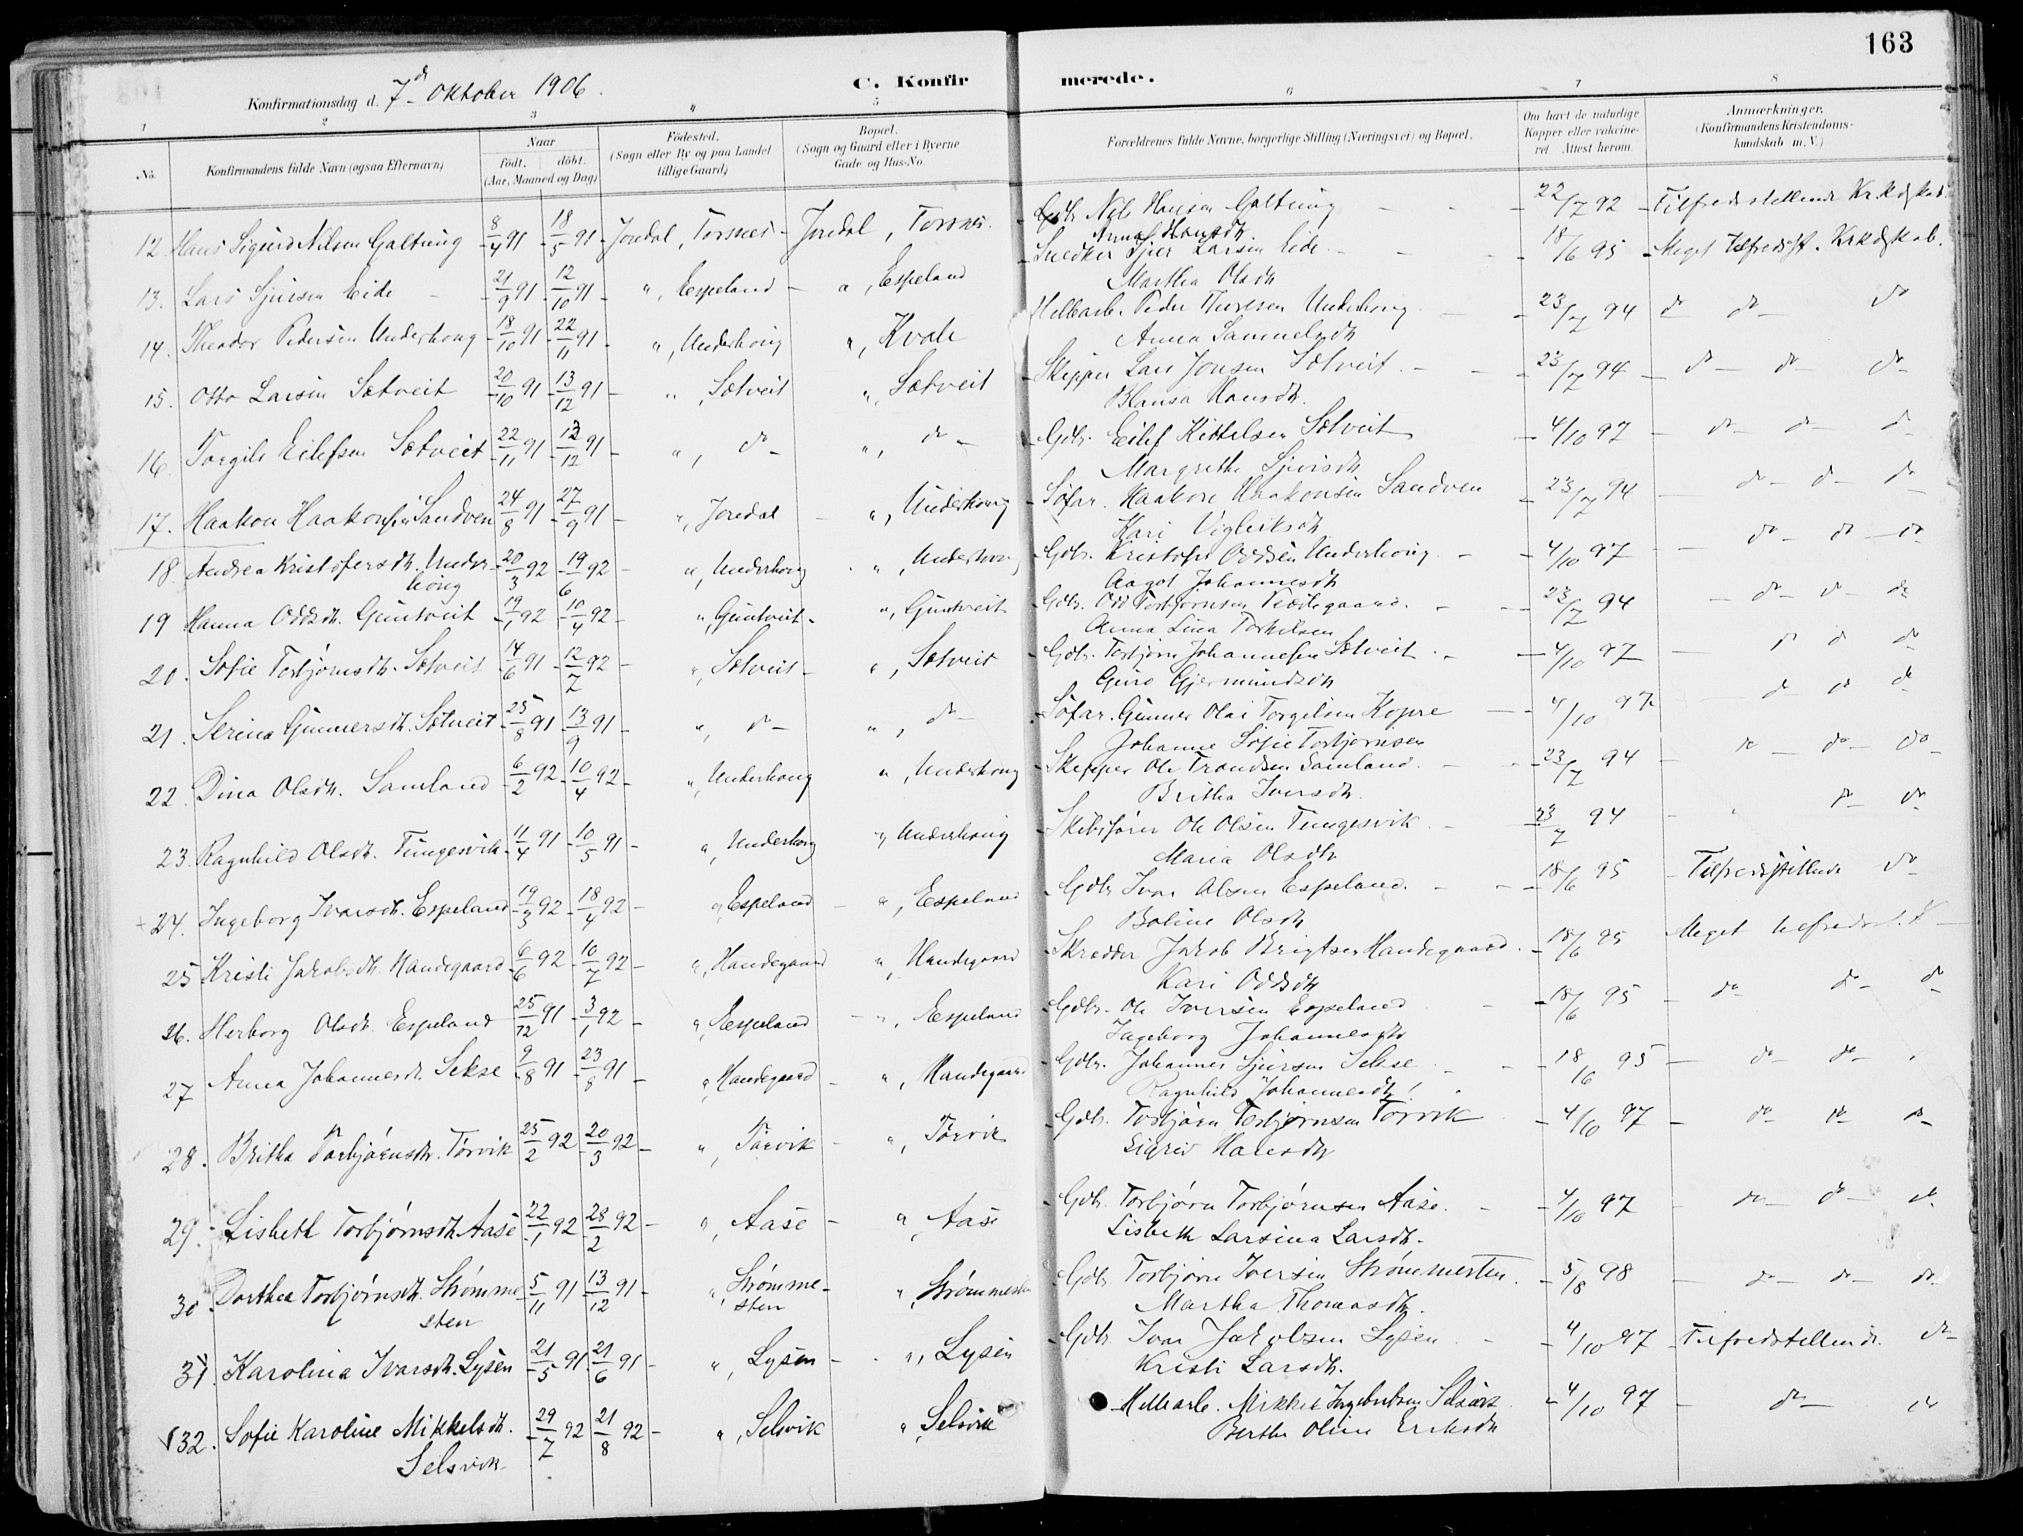 163
Konfirmationsdag d. 7de Oktober 1906.
C. Konfirmerede.
1 2 3 4 5 6 7 8
No. Konfirmandens fulde Navn (ogsaa Efternavn) Naar født. døbt. (Aar, Maaned og Dag) Födested. (Sogn eller By og paa Landet tillige Gaard) Bopæl. (Sogn og Gaard eller i Byerne Gade og Hus-No. Forældrenes fulde Navne, borgerlige Stilling (Næringsvei) og Bopæl. Om havt de naturlige Kopper eller vakcineret. Attest herom. Anmærkninger. (Konfirmandens Kristendomskundskab m. V.)
12. Hans Sigurd Nilsen Galtung 8/4 91 18/5 91 Jondal, Torsnes Jondal, Torsnes Gdb. Nils Hansen Galtung 22/7 92 Tilfredsstellende Kr.kdskab
Anna Hansdtr.
13. Lars Sjursen Eide 21/9 91 12/10 91 ", Espeland ", Espeland Snedker Sjur Larsen Eide 18/6 95 Meget tilfredsst. Krkdskab.
Martha Olsdtr
14. Theodor Pedersen Underhoug 18/10 91 22/11 91 ", Underhoug ", Kvale Peder Underhoug 23/7 94 do do do
Anna Samuelsdtr
15. Otto Larsen Sætveit 20/10 91 13/12 91 ", Sætveit ", Sætveit Skipper Lars Jonsen Sætveit 23/7 94 do do do
Hansdtr.
16. Torgils Eilefsen Sætveit 22/11 91 13/12 91 ", do ", do Gdb. Eilef Kittelsen Sætveit 4/10 97 do do do
Margrethe Sjursdtr
17. Haakon Haakonsen Sandven 24/8 91 27/9 91 ", Jondal ", Underhoug Søfar. Haakon Haakonsen Sandven 23/7 94 do do do
Kari Vigleiksdtr
18 Andrea Kristofersdtr. Underhoug 20/3 92 19/6 92 ", Underhoug ", Underhoug Gdb. Kristofer Oddsen Underhoug 4/10 97 do do do
Aagot Johannesdtr
19 Hanna Oddsdtr. Guntveit 19/1 92 10/4 92 ", Guntveit ", Guntveit Gdb. Odd Torbjørnsen 23/7 94 do do do
Anna Lina Torkilsen
20. Sofie Torbjørnsdtr. Sætveit 14/6 91 12/7 92 ", Sætveit ", Sætveit Gdb. Torbjørn Johannesen Sætveit 4/10 97 do do do
Guro Gjermundsdtr
21. Serina Gunnersdtr. Sætveit 25/8 91 13/9 91 ", do ", do Søfar. Gunner Olai Torgilsen Kopre 4/10 97 do do do
Johanne Sofie Torbjørnsen
22. Dina Olsdtr. Samland 6/2 92 10/4 92 ", Underhoug ", Underhoug Skipper Ole Trondsen Samland 23/7 94 do do do
Britha Iversdtr.
23. Ragnhild Olsdtr. Tungesvik 11/4 91 10/5 91 ", Underhoug ", Underhoug Skibsfører Ole Olsen Tungesvik 23/7 94 " do do
Maria Olsdtr
24. Ingeborg Ivarsdtr. Espeland 19/3 92 18/4 92 ", Espeland ", Espeland Gdb Ivar Olsen Espeland 18/6 95 Tilfredsstillende do
Boline Olsdtr
25 Kristi Jakobsdtr. Handegaard 6/6 92 10/7 92 ", Handegaard ", Handegaard Skrædder Jakob Brigtsen Handegaard 18/6 95 Meget tilfredsst. K
Kari Oddsdtr
26. Herborg Olsdtr. Espeland 25/12 91 3/1 92 ", Espeland ", Espeland Gdb. Ole Iversen Espeland 18/6 95 do do do
Ingeborg Johannesdtr
27 Anna Johannesdtr. Sekse 9/8 91 23/8 91 ", Handegaard ", Handegaard Gdb. Johannes Sjursen Sekse 18/6 95 do do "
Ragnhild Johannesdtr.
28. Britha Torbjørnsdtr. Tørvik 25/2 92 20/3 92 ", Tørvik ", Tørvik Gdb. Torbjørn Torbjørnsen Tørvik 4/10 97 do do do
Sigrid Hansdtr
29. Lisbeth Torbjørnsdtr. Aase 22/1 92 28/2 92 ", Aase ", Aase Gdb. Torbjørn Torbjørnsen Aase 4/10 97 do do do
Lisbeth Larsina Larsdtr.
30 Dorthea Torbjørnsdtr. Strømmesten 5/11 91 13/12 91 ", Strømmesten ", Strømmesten Gdb. Torbjørn Iversen Strømmesten 5/8 98 do do do
Martha Thomasdtr.
31. Karolina Ivarsdtr. Lysen 21/5 91 21/6 91 ", Lysen ", Lysen Gdb. Ivar Jakobsen Lysen 4/10 97 Tilfredsstillende do
Kristi Larsdtr.
32. Sofie Karoline Mikkelsdtr. 29/7 92 21/8 92 ", Selsvik ", Selsvik Mikkel Ingebrigtsen Selsvik 4/10 97 do do
Selsvik Berthe Oline Eriksdtr